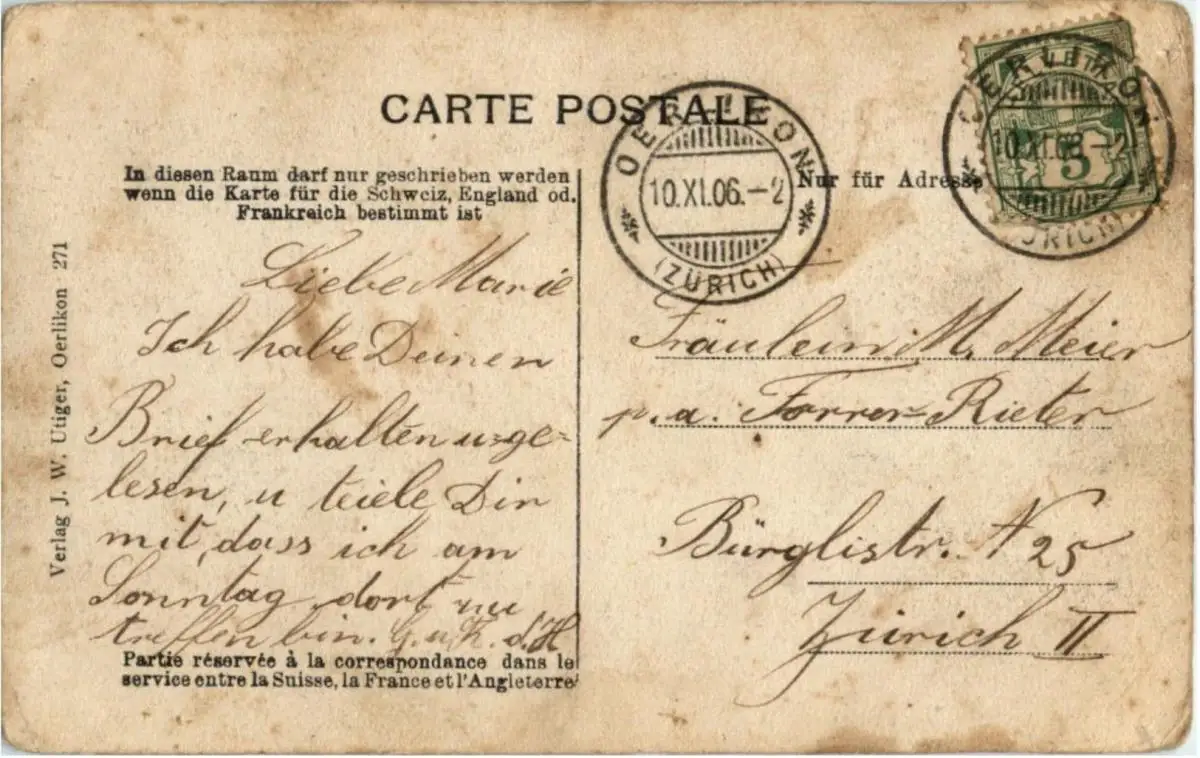 CARTE POSTALE
In diesen Raum darf nur geschrieben werden
wenn die Karte für die Schweiz, England od.
Frankreich bestimmt ist
Liebe Marie
Ich habe Deinen
Brief erhalten u. ge-
lesen, u teiele Dir
mit, dass ich am
Sonntag dort zu
treffen bin. G. u. K. d. H
Partie réservée à la correspondance dans le
service entre la Suisse, la France et l'Angleterre
Verlag J. W. Utiger, Oerlikon 271
OERLIKON
10.XI.06.-2
(ZÜRICH)
Nur für Adresse
OERLIKON
10.XI.06.-2
(ZÜRICH)
5
Fräulein M. Meier
p. a. Forrer-Rieter
Bürglistr. N 25
Zürich II